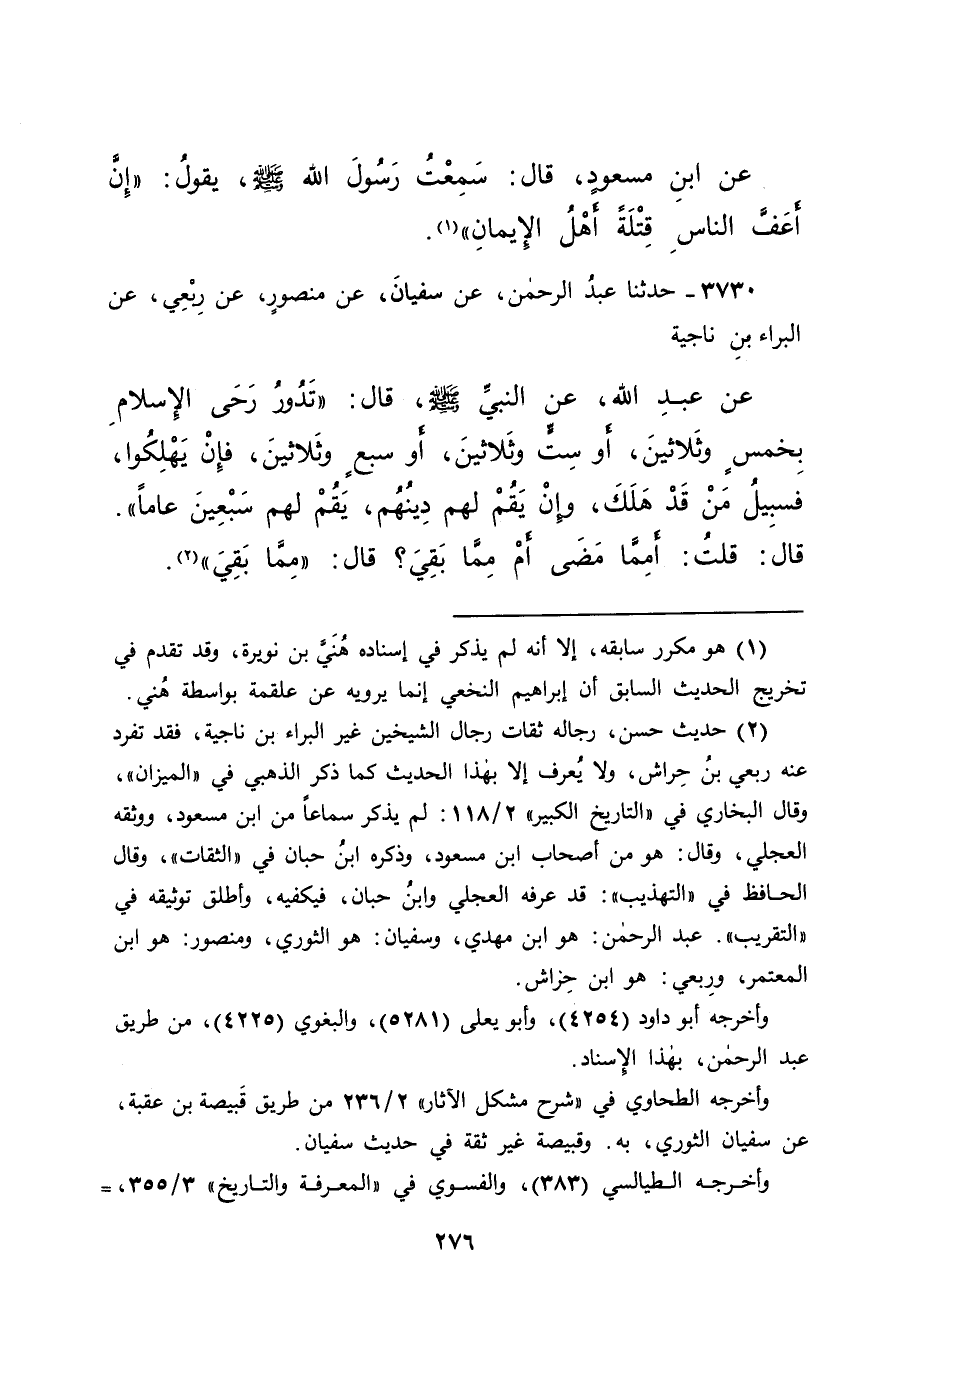 عن ابنِ مسعودٍ، قال: سَمِعْتُ رَسُولَ الله ﷺ، يقولُ: «إِنَّ
أَعَفَّ الناسِ قِتْلَةً أَهْلُ الإِيمانِ»(١).
٣٧٣٠ـ حدثنا عبدُ الرحمٰن، عن سفيانَ، عن منصورٍ، عن رِبْعِي، عن
البراء بنِ ناجية
عن عبـدِ الله، عن النبيِّ ﷺ، قال: «تَدُورُ رَحَى الإِسلامِ
بِخمسٍ وثَلاثينَ، أَو سِتٍّ وثَلاثينَ، أَو سبعٍ وثَلاثينَ، فإِنْ يَهْلِكُوا،
فسبِيلُ مَنْ قَدْ هَلَكَ، وإِنْ يَقُمْ لهم دِينُهُم، يَقُمْ لهم سَبْعِينَ عاماً».
قال: قلتُ: أَمِمَّا مَضَى أَمْ مِمَّا بَقِيَ؟ قال: «مِمَّا بَقِيَ»(٢).
(١) هو مكرر سابقه، إلا أنه لم يذكر في إسناده هُنَيَّ بن نويرة، وقد تقدم في
تخريج الحديث السابق أن إبراهيم النخعي إنما يرويه عن علقمة بواسطة هُني.
(٢) حديث حسن، رجاله ثقات رجال الشيخين غير البراء بن ناجية، فقد تفرد
عنه ربعي بنُ حِراش، ولا يُعرف إلا بهٰذا الحديث كما ذكر الذهبي في «الميزان»،
وقال البخاري في «التاريخ الكبير» ١١٨/٢: لم يذكر سماعاً من ابن مسعود، ووثقه
العجلي، وقال: هو من أصحاب ابن مسعود، وذكره ابنُ حبان في «الثقات»، وقال
الحـافظ في «التهذيب»: قد عرفه العجلي وابنُ حبان، فيكفيه، وأطلق توثيقه في
«التقريب». عبد الرحمٰن: هو ابن مهدي، وسفيان: هو الثوري، ومنصور: هو ابن
المعتمر، ورِبعي: هو ابن حِزاش.
وأخرجه أبو داود (٤٢٥٤)، وأبو يعلى (٥٢٨١)، والبغوي (٤٢٢٥)، من طريق
عبد الرحمٰن، بهٰذا الإِسناد.
وأخرجه الطحاوي في «شرح مشكل الآثار» ٢٣٦/٢ من طريق قَبيصة بن عقبة،
عن سفيان الثوري، به. وقبيصة غير ثقة في حديث سفيان.
وأخـرجـه الـطيالسي (٣٨٣)، والفسوي في «المعـرفـة والتـاريخ» ٣٥٥/٣، =
٢٧٦